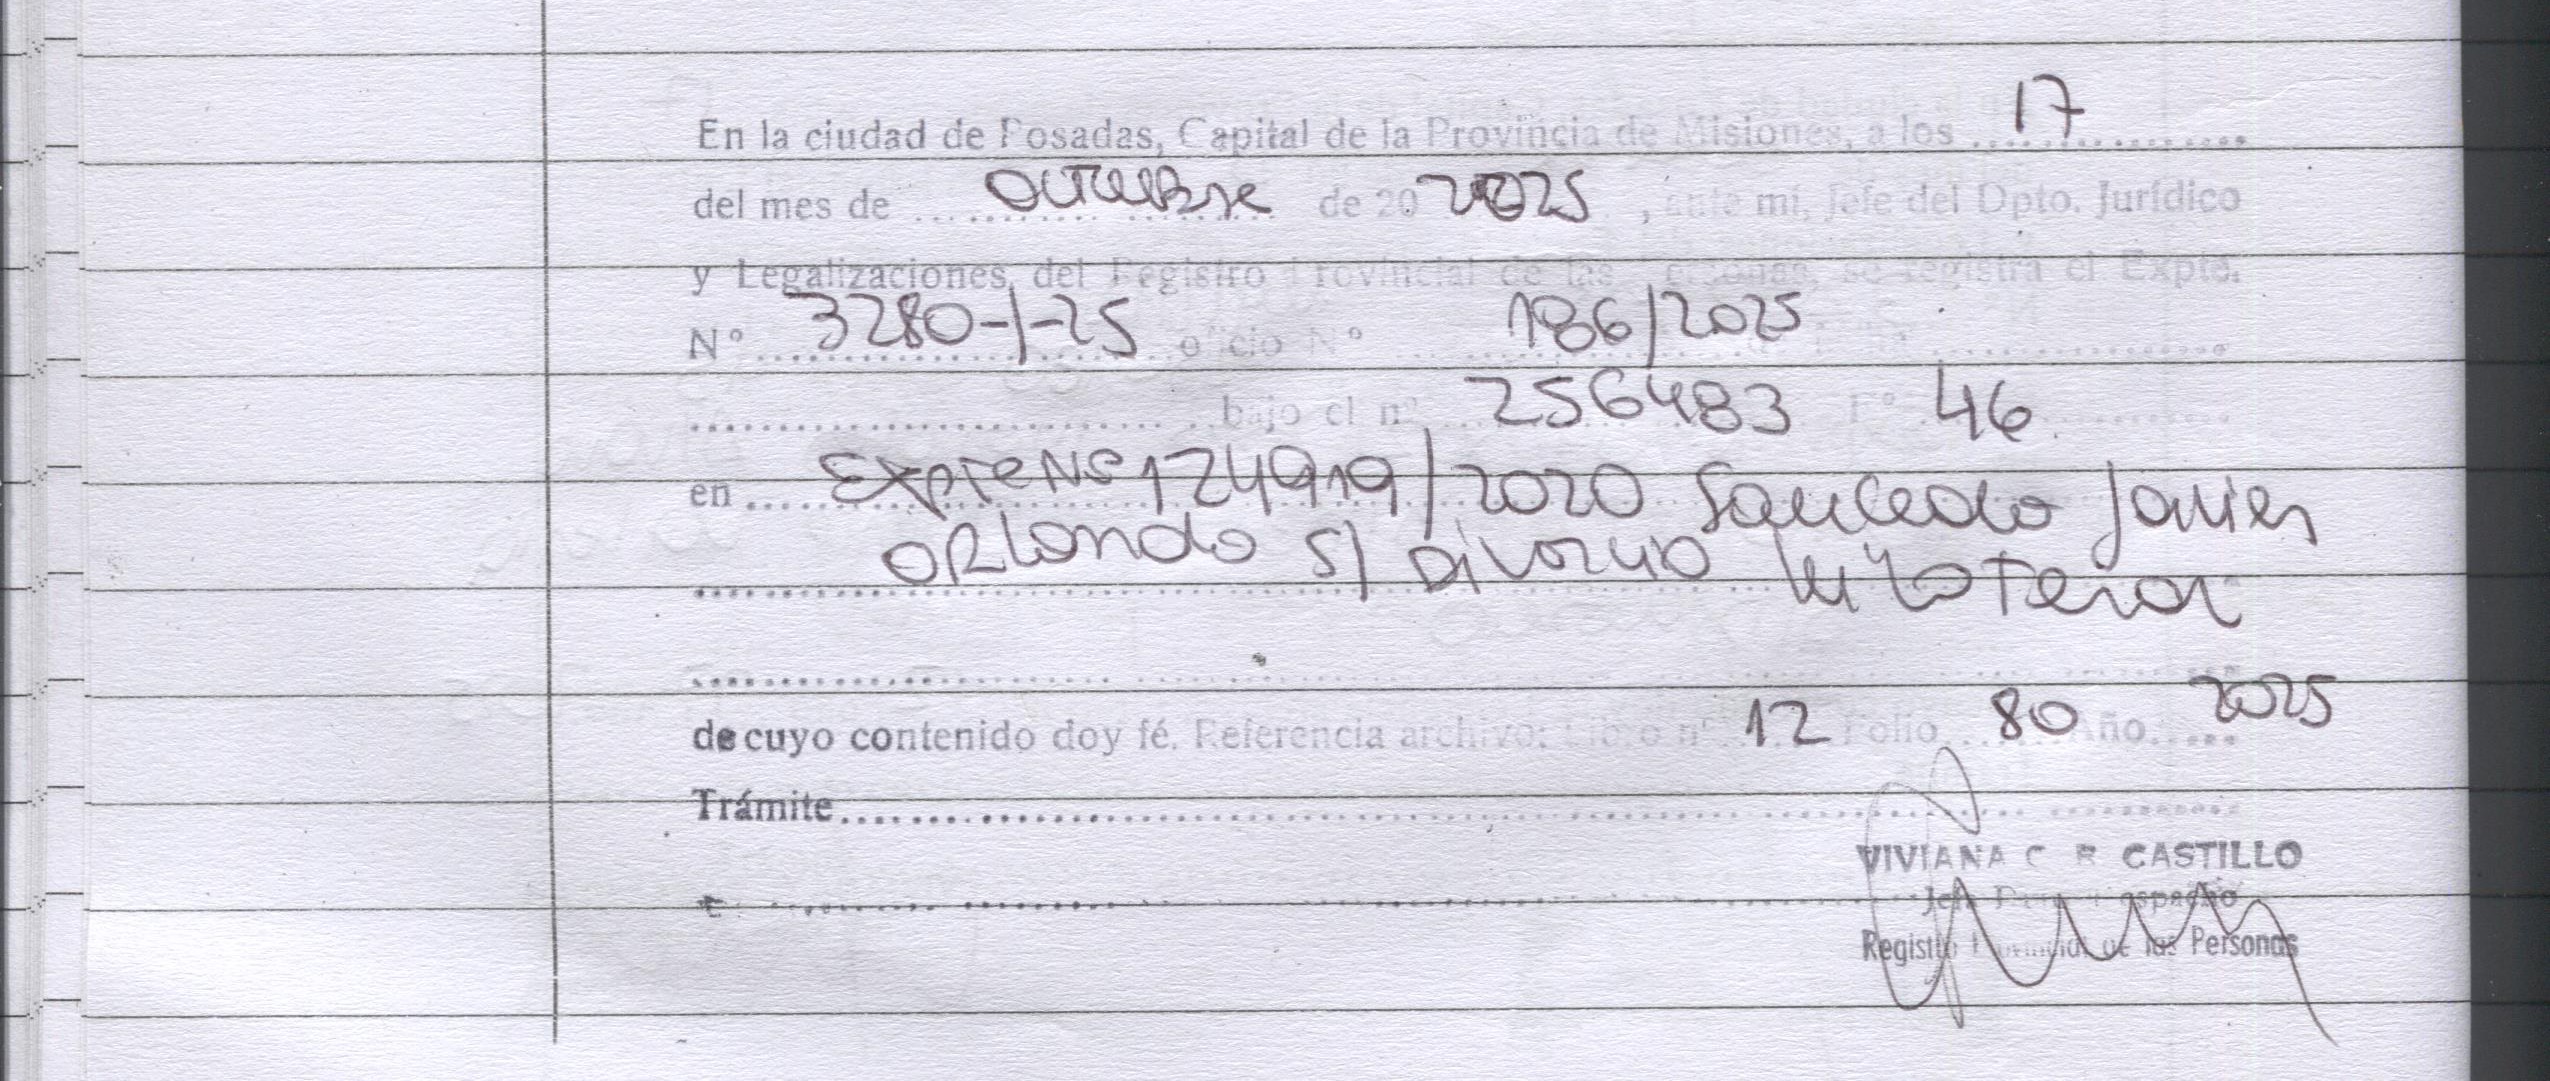 En la ciudad de Posadas, Capital de la Provincia de Misiones, a los 17
del mes de octubre de 20 2025, ante mí, Jefe del Dpto. Jurídico
y Legalizaciones, del Registro Provincial de las Personas, se registra el Expte.
Nº 3280-I-25 oficio Nº 186/2025
bajo el nº 256483 Fº 46
en Expte Nº 124919/2020 Saucedo Javier
Orlando s/ Divorcio Unilateral
de cuyo contenido doy fé. Referencia archivo: Libro nº 12 Folio 80 Año 2025
Trámite
VIVIANA C. R. CASTILLO
Jefe Despacho
Registro Provincial de las Personas